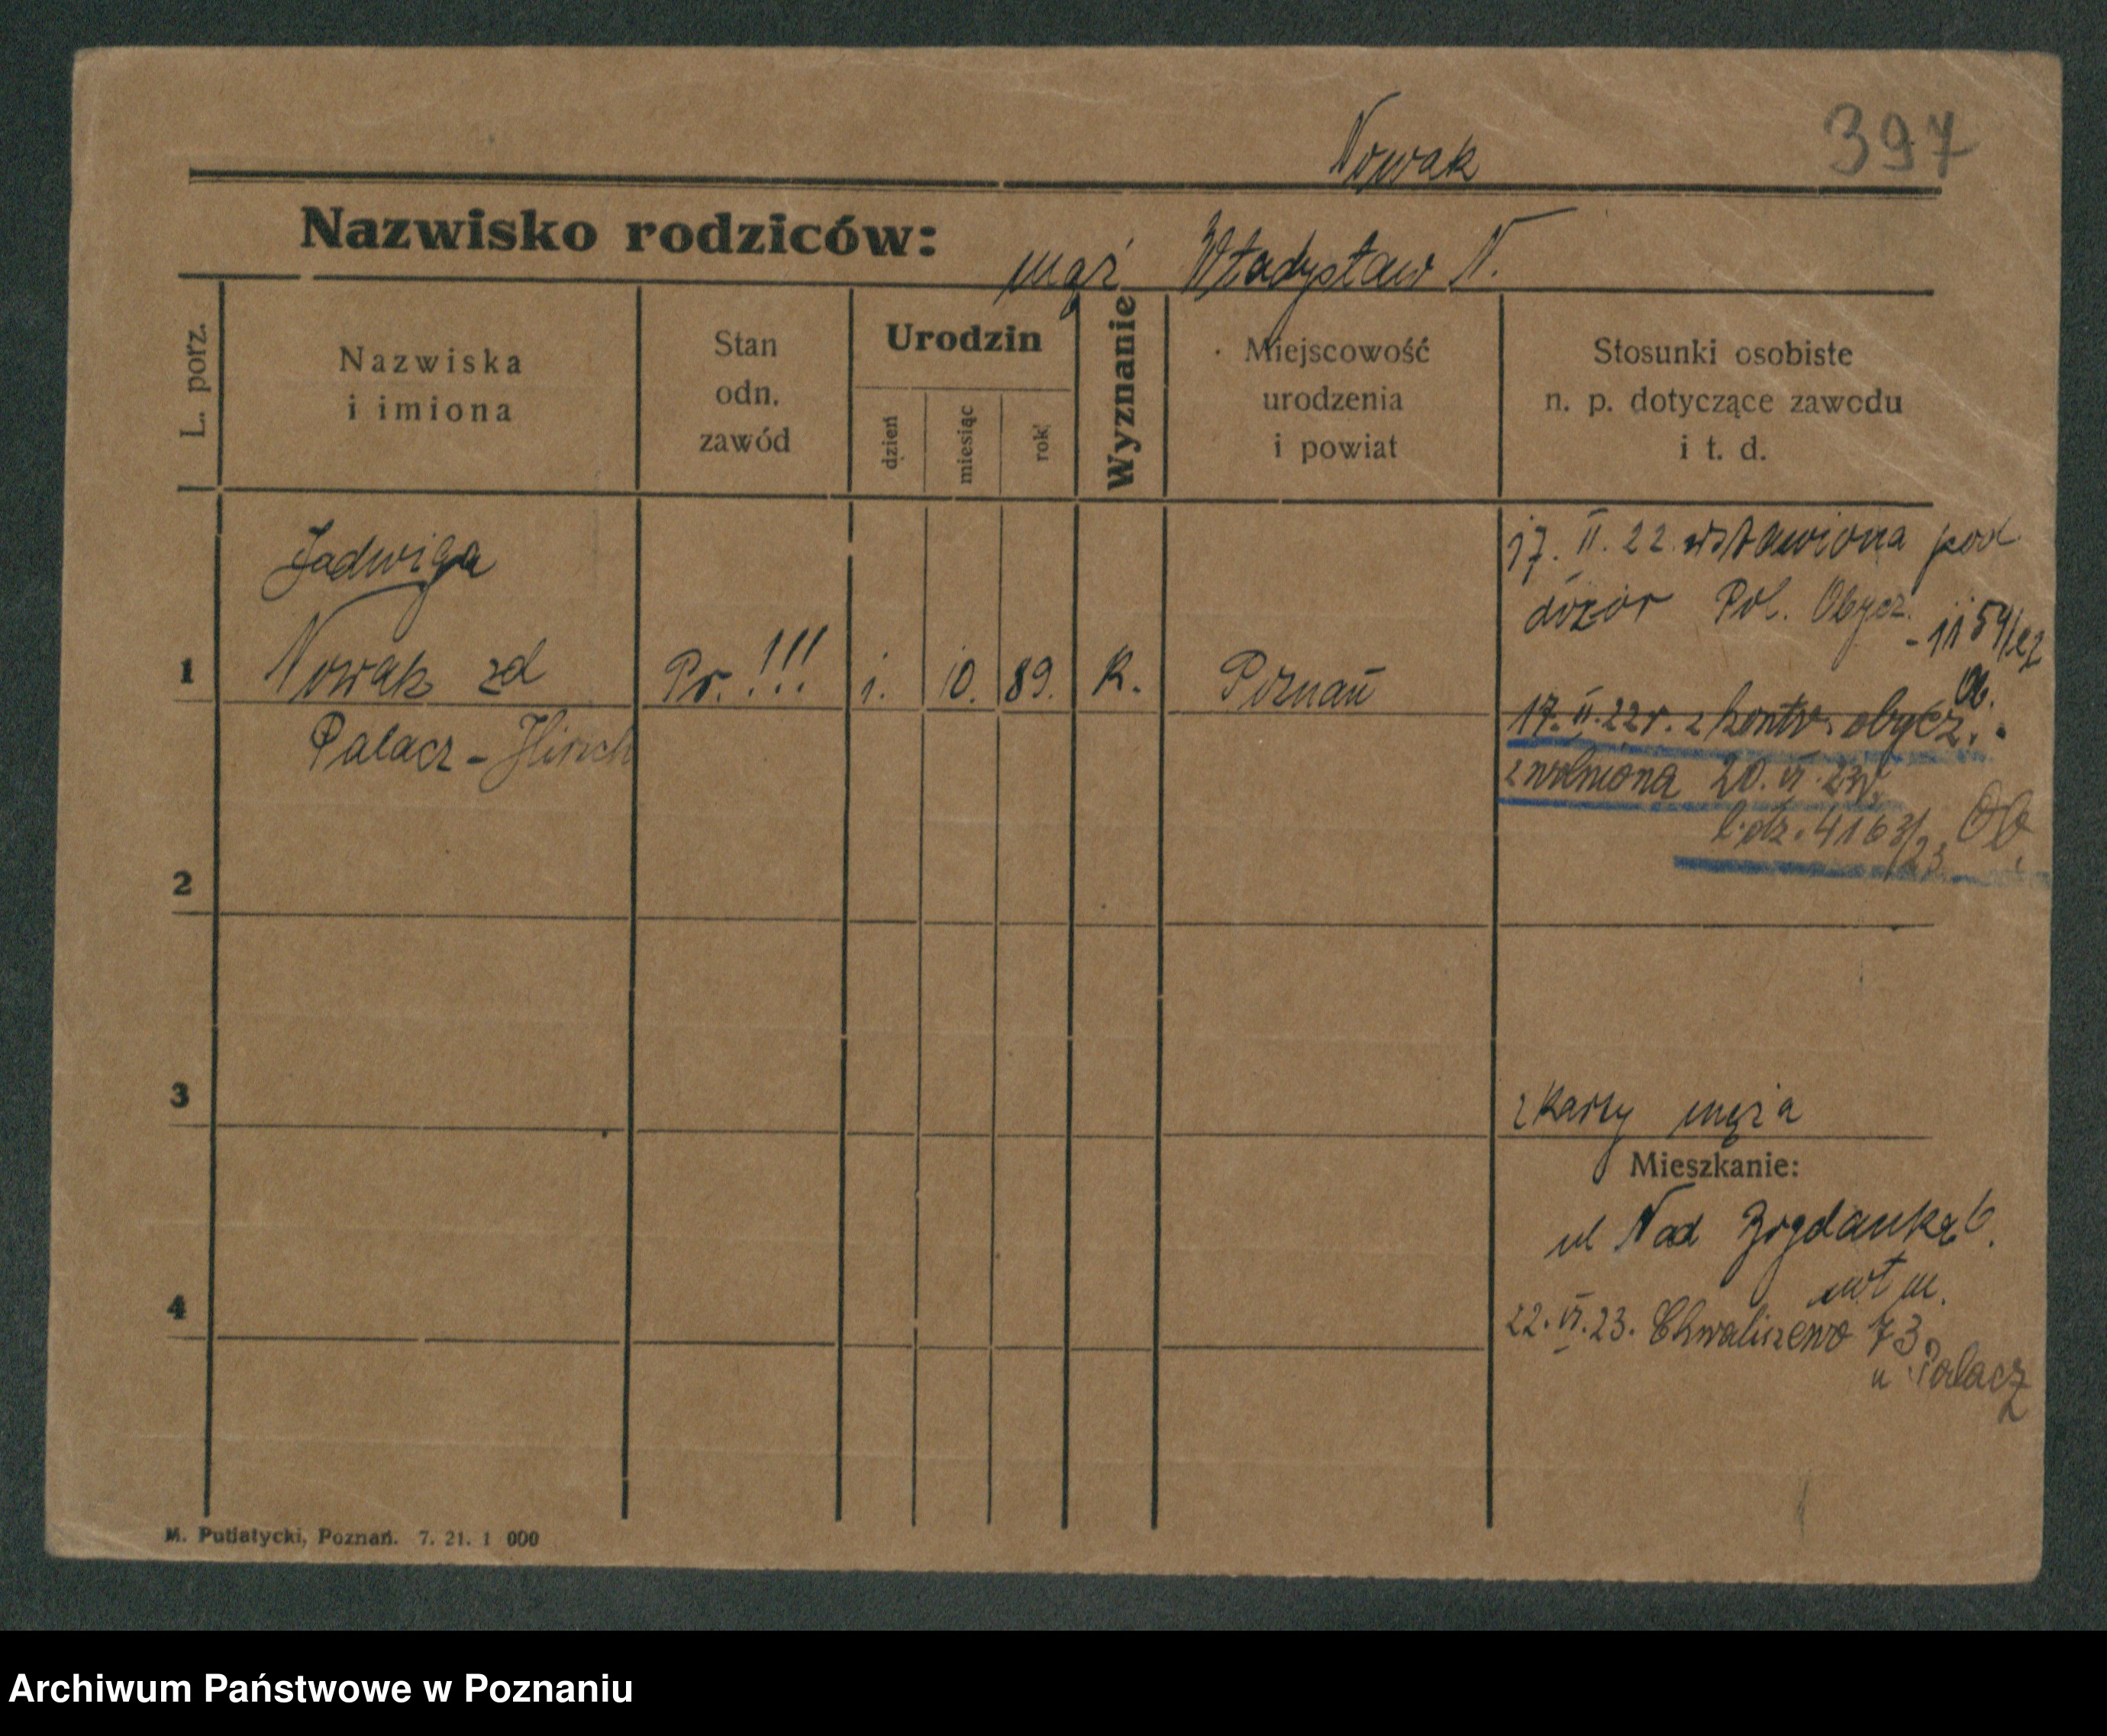 397
Nowak
Nazwisko rodziców: mąż Władysław N.
L. porz.
Nazwiska
i imiona
Stan
odn.
zawód
Urodzin
dzień
miesiąc
rok
Wyznanie
Miejscowość
urodzenia
i powiat
Stosunki osobiste
n. p. dotyczące zawodu
i t. d.
Jadwiga
1 Nowak zd Pr. !!! 1. 10. 89. K. Poznań
Palacz - Hirsch
17. II. 22. wstawiona pod
dozór Pol. Obycz.
- 1154/22
Ob.
17. II. 22 r. z kontr. obycz.
zwolniona 20. VI. 23 r.
l. dz. 4163/23. Ob
2
3
z karty męża
Mieszkanie:
ul Nad Bogdanką 6.
wł m.
4
22. VI. 23. Chwaliszewo 73
u Palacz
M. Putiatycki, Poznań. 7. 21. 1 000
Archiwum Państwowe w Poznaniu